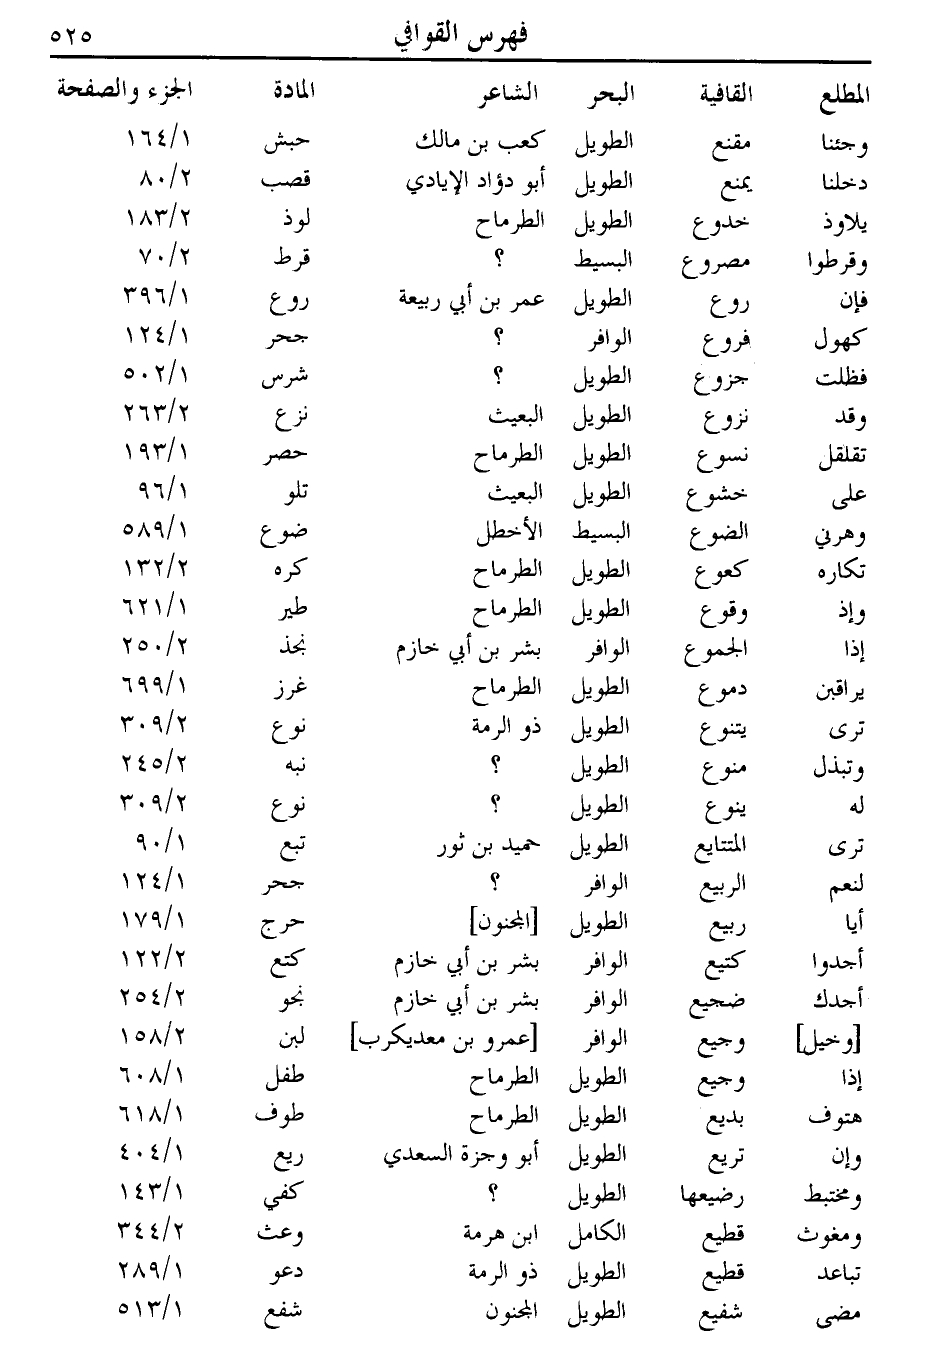 فهرس القوافي ٥٢٥
المطلع القافية البحر الشاعر المادة الجزء والصفحة
وجئنا مقنع الطويل كعب بن مالك حبش ١٦٤/١
دخلنا يمنع الطويل أبو دؤاد الإيادي قصب ٨٠/٢
يلاوذ خدوع الطويل الطرماح لوذ ١٨٣/٢
وقرطوا مصروع البسيط ؟ قرط ٧٠/٢
فإن روع الطويل عمر بن أبي ربيعة روع ٣٩٦/١
كهول فروع الوافر ؟ جحر ١٢٤/١
فظلت جزوع الطويل ؟ شرس ٥٠٢/١
وقد نزوع الطويل البعيث نزع ٢٦٣/٢
تقلقل نسوع الطويل الطرماح حصر ١٩٣/١
على خشوع الطويل البعيث تلو ٩٦/١
وهرني الضوع البسيط الأخطل ضوع ٥٨٩/١
تكاره كعوع الطويل الطرماح كره ١٣٢/٢
وإذ وقوع الطويل الطرماح طير ٦٢١/١
إذا الجموع الوافر بشر بن أبي خازم نجذ ٢٥٠/٢
يراقبن دموع الطويل الطرماح غرز ٦٩٩/١
ترى يتنوع الطويل ذو الرمة نوع ٣٠٩/٢
وتبذل منوع الطويل ؟ نبه ٢٤٥/٢
له ينوع الطويل ؟ نوع ٣٠٩/٢
ترى المتتايع الطويل حميد بن ثور تبع ٩٠/١
لنعم الربيع الوافر ؟ جحر ١٢٤/١
أيا ربيع الطويل [المجنون] حرج ١٧٩/١
أجدوا كتيع الوافر بشر بن أبي خازم كتع ١٢٢/٢
أجدك ضجيع الوافر بشر بن أبي خازم نجو ٢٥٤/٢
[وخيل] وجيع الوافر [عمرو بن معديكرب] لبن ١٥٨/٢
إذا وجيع الطويل الطرماح طفل ٦٠٨/١
هتوف بديع الطويل الطرماح طوف ٦١٨/١
وإن تريع الطويل أبو وجزة السعدي ريع ٤٠٤/١
ومختبط رضيعها الطويل ؟ كفي ١٤٣/١
ومغوث قطيع الكامل ابن هرمة وعث ٣٤٤/٢
تباعد قطيع الطويل ذو الرمة دعو ٢٨٩/١
مضى شفيع الطويل المجنون شفع ٥١٣/١